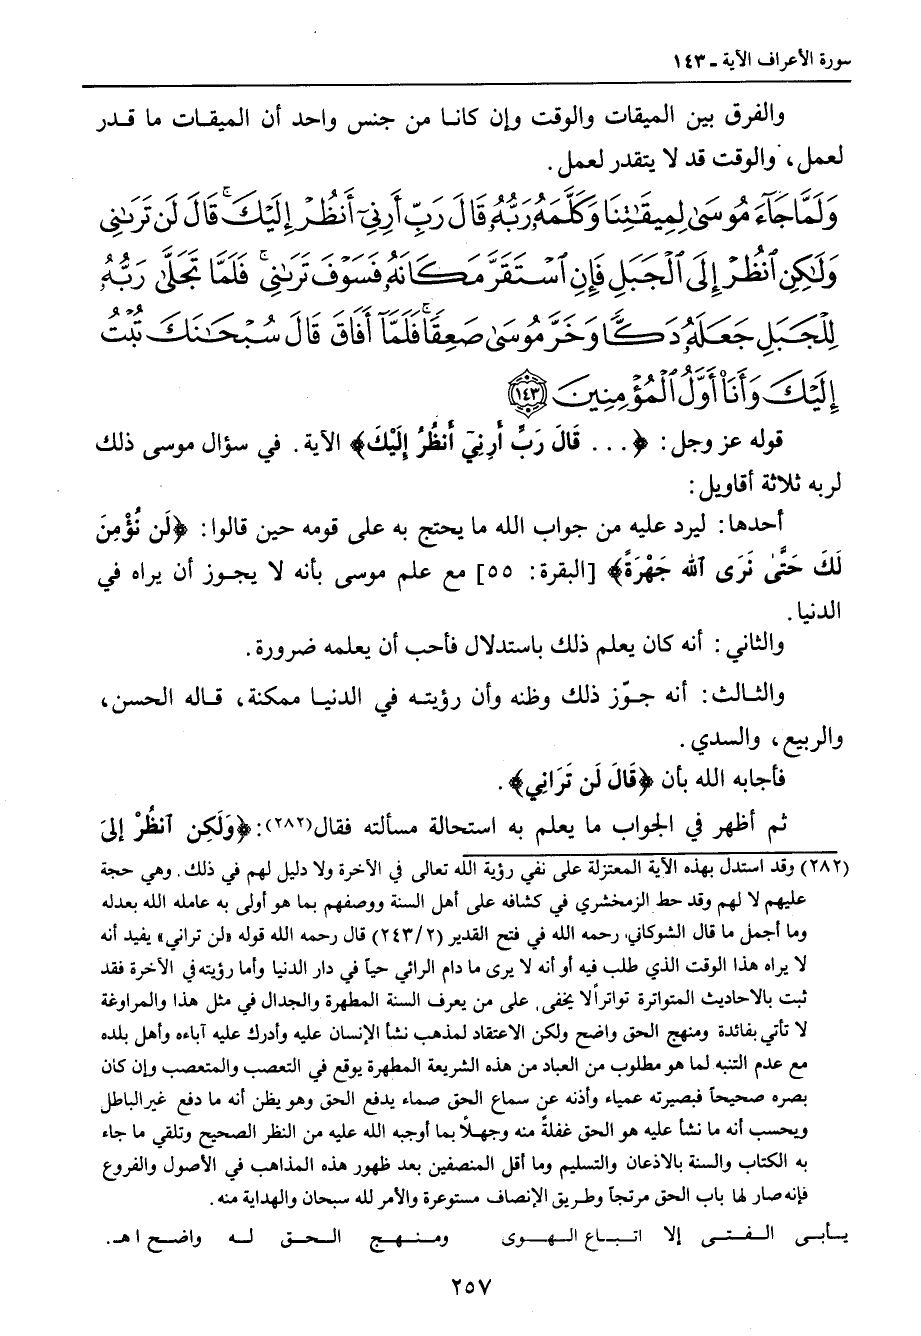 سورة الأعراف الآية ـ ١٤٣
والفرق بين الميقات والوقت وإن كانا من جنس واحد أن الميقات ما قدر
لعمل، والوقت قد لا يتقدر لعمل.
وَلَمَّا جَآءَ مُوسَىٰ لِمِيقَٰتِنَا وَكَلَّمَهُۥ رَبُّهُۥ قَالَ رَبِّ أَرِنِيٓ أَنظُرْ إِلَيْكَ ۚ قَالَ لَن تَرَىٰنِي
وَلَٰكِنِ ٱنظُرْ إِلَى ٱلْجَبَلِ فَإِنِ ٱسْتَقَرَّ مَكَانَهُۥ فَسَوْفَ تَرَىٰنِي ۚ فَلَمَّا تَجَلَّىٰ رَبُّهُۥ
لِلْجَبَلِ جَعَلَهُۥ دَكًّا وَخَرَّ مُوسَىٰ صَعِقًا ۚ فَلَمَّآ أَفَاقَ قَالَ سُبْحَٰنَكَ تُبْتُ
إِلَيْكَ وَأَنَا۠ أَوَّلُ ٱلْمُؤْمِنِينَ ١٤٣
قوله عز وجل: ﴿... قَالَ رَبِّ أَرِنِيٓ أَنظُرْ إِلَيْكَ﴾ الآية. في سؤال موسى ذلك
لربه ثلاثة أقاويل:
أحدها: ليرد عليه من جواب الله ما يحتج به على قومه حين قالوا: ﴿لَن نُّؤْمِنَ
لَكَ حَتَّىٰ نَرَى ٱللَّه جَهْرَةً﴾ [البقرة: ٥٥] مع علم موسى بأنه لا يجوز أن يراه في
الدنيا.
والثاني: أنه كان يعلم ذلك باستدلال فأحب أن يعلمه ضرورة.
والثالث: أنه جوّز ذلك وظنه وأن رؤيته في الدنيا ممكنة، قاله الحسن،
والربيع، والسدي.
فأجابه الله بأن ﴿قَالَ لَن تَرَانِي﴾.
ثم أظهر في الجواب ما يعلم به استحالة مسألته فقال(٢٨٢): ﴿وَلَكِن ٱنظُرْ إِلىَ
(٢٨٢) وقد استدل بهذه الآية المعتزلة على نفي رؤية الله تعالى في الآخرة ولا دليل لهم في ذلك. وهي حجة
عليهم لا لهم وقد حط الزمخشري في كشافه على أهل السنة ووصفهم بما هو أولى به عامله الله بعدله
وما أجمل ما قال الشوكاني رحمه الله في فتح القدير (٢/ ٢٤٣) قال رحمه الله قوله «لن تراني» يفيد أنه
لا يراه هذا الوقت الذي طلب فيه أو أنه لا يرى ما دام الرائي حياً في دار الدنيا وأما رؤيته في الآخرة فقد
ثبت بالاحاديث المتواترة تواتراً لا يخفى على من يعرف السنة المطهرة والجدال في مثل هذا والمراوغة
لا تأتي بفائدة ومنهج الحق واضح ولكن الاعتقاد لمذهب نشأ الإنسان عليه وأدرك عليه آباءه وأهل بلده
مع عدم التنبه لما هو مطلوب من العباد من هذه الشريعة المطهرة يوقع في التعصب والمتعصب وإن كان
بصره صحيحاً فبصيرته عمياء وأذنه عن سماع الحق صماء يدفع الحق وهو يظن أنه ما دفع غير الباطل
ويحسب أنه ما نشأ عليه هو الحق غفلةً منه وجهلاً بما أوجبه الله عليه من النظر الصحيح وتلقي ما جاء
به الكتاب والسنة بالاذعان والتسليم وما أقل المنصفين بعد ظهور هذه المذاهب في الأصول والفروع
فإنه صار لها باب الحق مرتجاً وطريق الإنصاف مستوعرة والأمر لله سبحان والهداية منه.
يأبى الفتى إلا اتباع الهوى ومنهج الحق له واضح اهـ.
٢٥٧